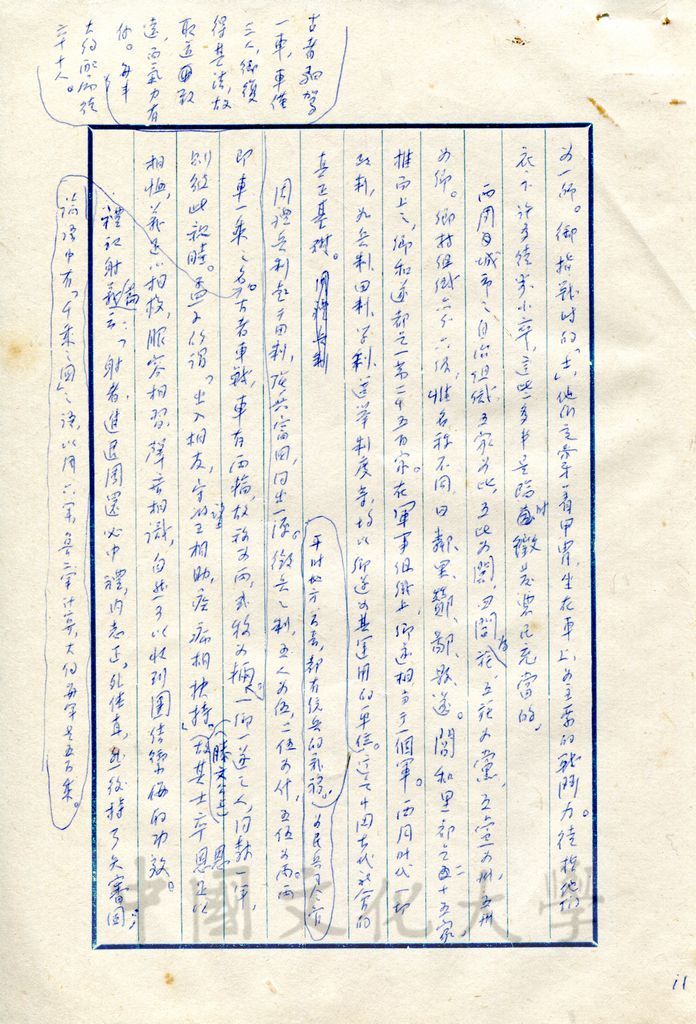 古者駟駕
一車，車僅
三人，御復
得其法，故
取道
遠而氣力有
大約配徒
六十人。
為一師。御指戰時的「士」，他們立穿著甲冑，坐在車上，為主要的戰鬥力。徒指地
衣下許多徒步小卒，這些多半是臨時徵發農民充當的。
西周城市之自治組織，五家為比，五比為閭，四閭為族，五族為黨，五黨為州，五州
為鄉。鄉村組織亦分六級，惟名稱不同，曰鄰、里、酇、鄙、縣、遂。閭和里都是二十五家，
推而上之，鄉和遂都是一萬二千五百家。在軍事組織上，鄉遂相當於一個軍。西周時代一切
政制，如兵制、田制、學制、選舉制度等，均以鄉遂為其運用的單位。這是中國古代社會的
真正基礎。
平時地方首長，都有統兵的職務。為民兵司令官
周禮兵制起於田制，故兵富同出一源。徵兵之制，五人為伍，二伍為什，五伍為兩。兩
即車一乘之名。古者車戰，車有兩輪，故稱為兩，或稱為輛。一鄉一遂之人，同隸一軍，
則彼此親睦。孟子所謂「出入相友，守望相助，疾病相扶持」(滕文公上)故其士卒恩足以
相恤，義足以相救，服容相習，聲音相識，自然可以收到團結禦侮的功效。
禮記射義篇云：「射者，進退周還必中禮，內志正，外體直，然後持弓矢審固；
論語中有「千乘之國」之語，以周六軍，魯二軍計算，大約每軍是五百乘。
11
中國文化大學